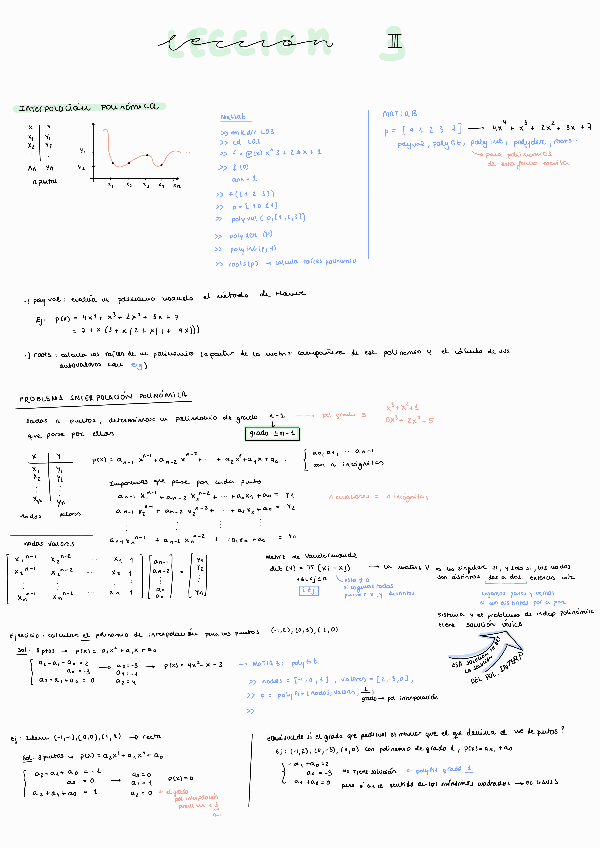 LECCIÓN 3
lección III
INTERPOLACIÓN POLINÓMICA
x y
x1 y1
x2 y2
xn yn
n puntos
y1
y2
x1 x2 x3 x4 xn
Matlab
>> mkdir L03
>> cd L03
>> f = @(x) x^3 + 2*x + 1
>> f(0)
ans = 1
>> f([1 2 3])
>> p = [1 0 2 1]
>> polyval(p,[1,2,3])
>> polyder(p)
>> polyint(p,4)
>> roots(p) → calcula raíces polinomio
MATLAB
p = [4 1 2 3 7] → 4x^4 + x^3 + 2x^2 + 3x + 7
polyval, polyfit, polyint, polyder, roots...
→ para polinomios
de esta forma escrita
·) polyval: evalúa un polinomio usando el método de Horner
Ej. p(x) = 4x^4 + x^3 + 2x^2 + 3x + 7
= 7 + x(3 + x(2 + x(1 + 4x)))
·) roots: calcula las raíces de un polinomio (a partir de la matriz compañera de ese polinomio y el cálculo de sus
autovalores con eig)
PROBLEMA INTERPOLACIÓN POLINÓMICA
Dados n puntos, determinar un polinomio de grado n-1 → pol grado 3
que pase por ellos
grado ≤ n-1
x^3+x^2+1
0x^3+2x^2-5
x y
x1 y1
x2 y2
xn yn
nodos valores
p(x) = a_{n-1} x^{n-1} + a_{n-2} x^{n-2} + ... + a_2 x^2 + a_1 x + a_0
a0, a1, ... an-1
son n incógnitas
Imponemos que pase por cada punto
a_{n-1} x_1^{n-1} + a_{n-2} x_1^{n-2} + ... + a_1 x_1 + a_0 = y1
a_{n-1} x_2^{n-1} + a_{n-2} x_2^{n-2} + ... + a_1 x_2 + a_0 = y2
a_{n-1} x_n^{n-1} + a_{n-2} x_n^{n-2} + ... + a_1 x_n + a_0 = yn
n ecuaciones = n incógnitas
nodos valores
x_1^{n-1} x_1^{n-2} ... x_1 1
x_2^{n-1} x_2^{n-2} ... x_2 1
x_n^{n-1} x_n^{n-2} ... x_n 1
a_{n-1} a_{n-2} a_1 a_0 = y1 y2 yn
Matriz de Vandermonde
det(V) = π (xi - xj)
1≤i<j≤n
i≠j
esto ≠ 0
La matriz V es no singular si, y solo si, los nodos
son distintos dos a dos
si son distintos dos a dos
sistema y el problema de interp polinómica
tiene solución única
ESA SOLUCIÓN ES
LA SOLUCIÓN
DEL POL. INTERP
Ejercicio: calcular el polinomio de interpolación para los puntos (-1,2), (0,-3), (1,0)
Sol: 3 ptos → p(x) = a2x^2 + a1x + a0
a2 - a1 + a0 = 2
a0 = -3
a2 + a1 + a0 = 0
→ a0 = -3
a1 = -1
a2 = 4
→ p(x) = 4x^2 - x - 3
→ MATLAB: polyfit
>> nodos = [-1,0,1], valores = [2,-3,0],
>> p = polyfit(nodos, valores, 2)
grado → pol interpolación
>>
Ej: Idem (-1,-1), (0,0), (1,1) → recta
Sol: 3 puntos → p(x) = a2x^2 + a1x + a0
a2 - a1 + a0 = -1
a0 = 0
a2 + a1 + a0 = 1
→ a0 = 0
a1 = 1
a2 = 0
→ el grado
pol interpolación
Ej: (-1,2), (0,-3), (1,0) con polinomio de grado 1, p(x) = a1x + a0
-a1 + a0 = 2
a0 = -3
a1 + a0 = 0
no tiene solución → polyfit grado 1
pero sí en el sentido de los mínimos cuadrados